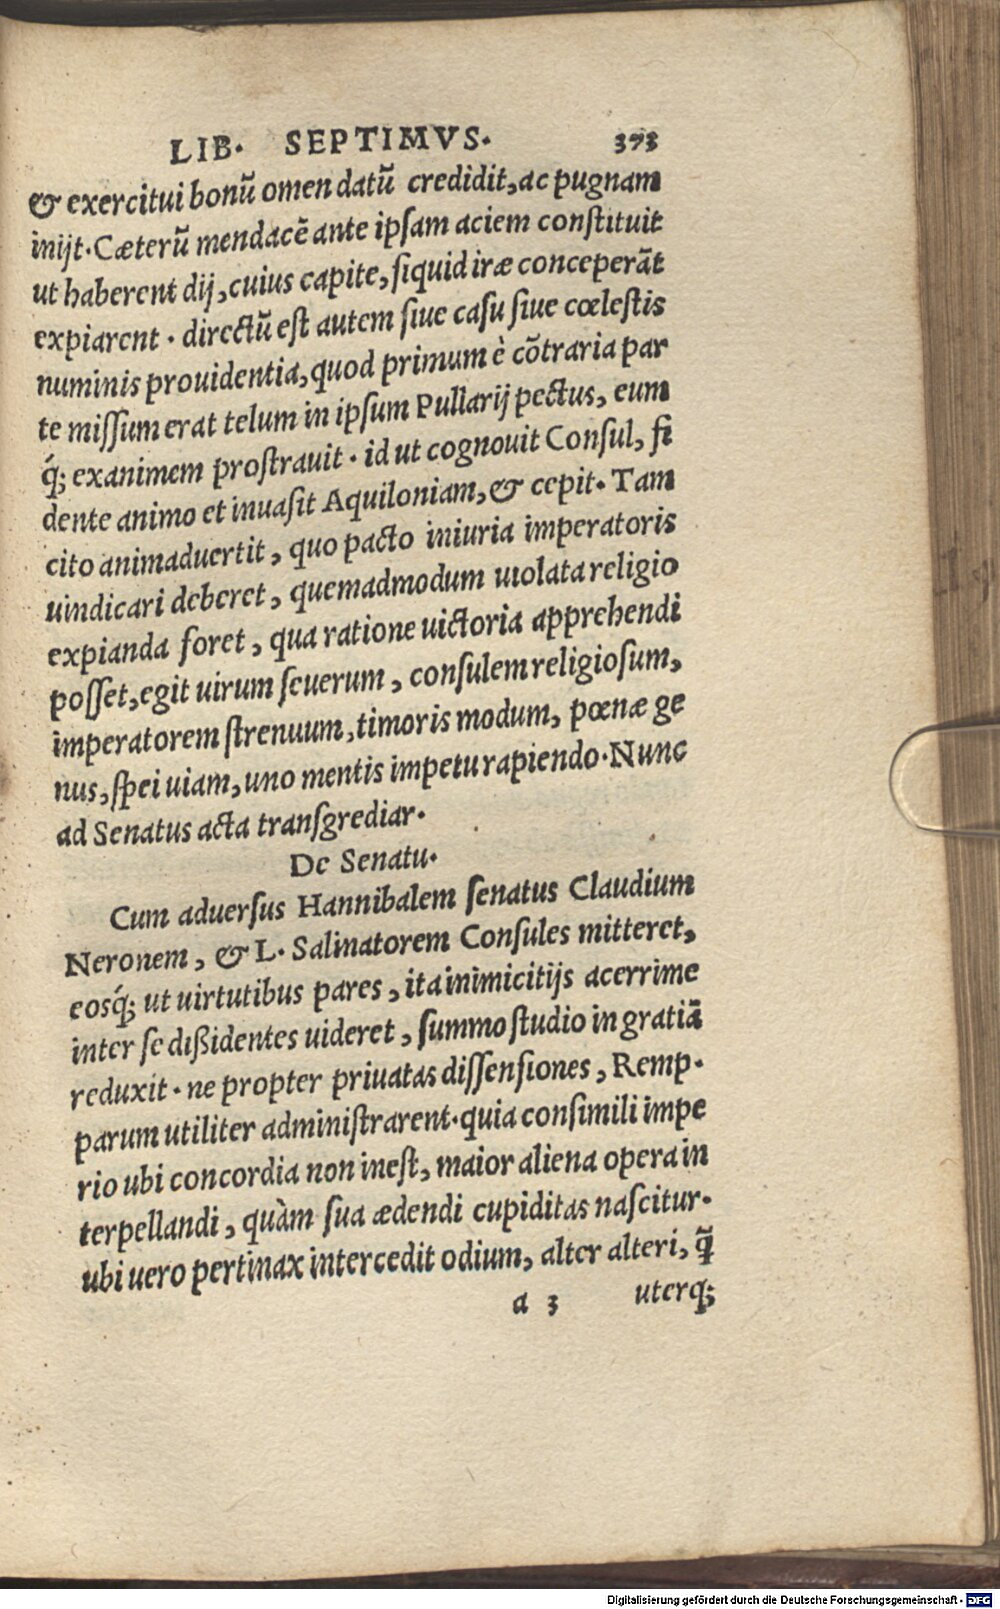 LIB. SEPTIMVS. 373
& exercitui bonũ omen datũ credidit, ac pugnam
inijt. Cæterũ mendacẽ ante ipsam aciem constituit
ut haberent dij, cuius capite, siquid iræ conceperãt
expiarent. directũ est autem siue casu siue cœlestis
numinis prouidentia, quod primum è cõtraria par
te missum erat telum in ipsum Pullarij pectus, eum
q́; exanimem prostrauit. id ut cognouit Consul, fi
dente animo et inuasit Aquiloniam, & cepit. Tam
cito animaduertit, quo pacto iniuria imperatoris
uindicari deberet, quemadmodum uiolata religio
expianda foret, qua ratione uictoria apprehendi
posset, egit uirum seuerum, consulem religiosum,
imperatorem strenuum, timoris modum, pœnæ ge
nus, spei uiam, uno mentis impetu rapiendo. Nunc
ad Senatus acta transgrediar.
De Senatu.
Cum aduersus Hannibalem senatus Claudium
Neronem, & L. Salinatorem Consules mitteret,
eosq́; ut uirtutibus pares, ita inimicitijs acerrime
inter se dißidentes uideret, summo studio in gratiã
reduxit. ne propter priuatas dissensiones, Remp.
parum utiliter administrarent. quia consimili impe
rio ubi concordia non inest, maior aliena opera in
terpellandi, quàm sua ædendi cupiditas nascitur.
ubi uero pertinax intercedit odium, alter alteri, q̃
a 3 uterq;
Digitalisierung gefördert durch die Deutsche Forschungsgemeinschaft - DFG